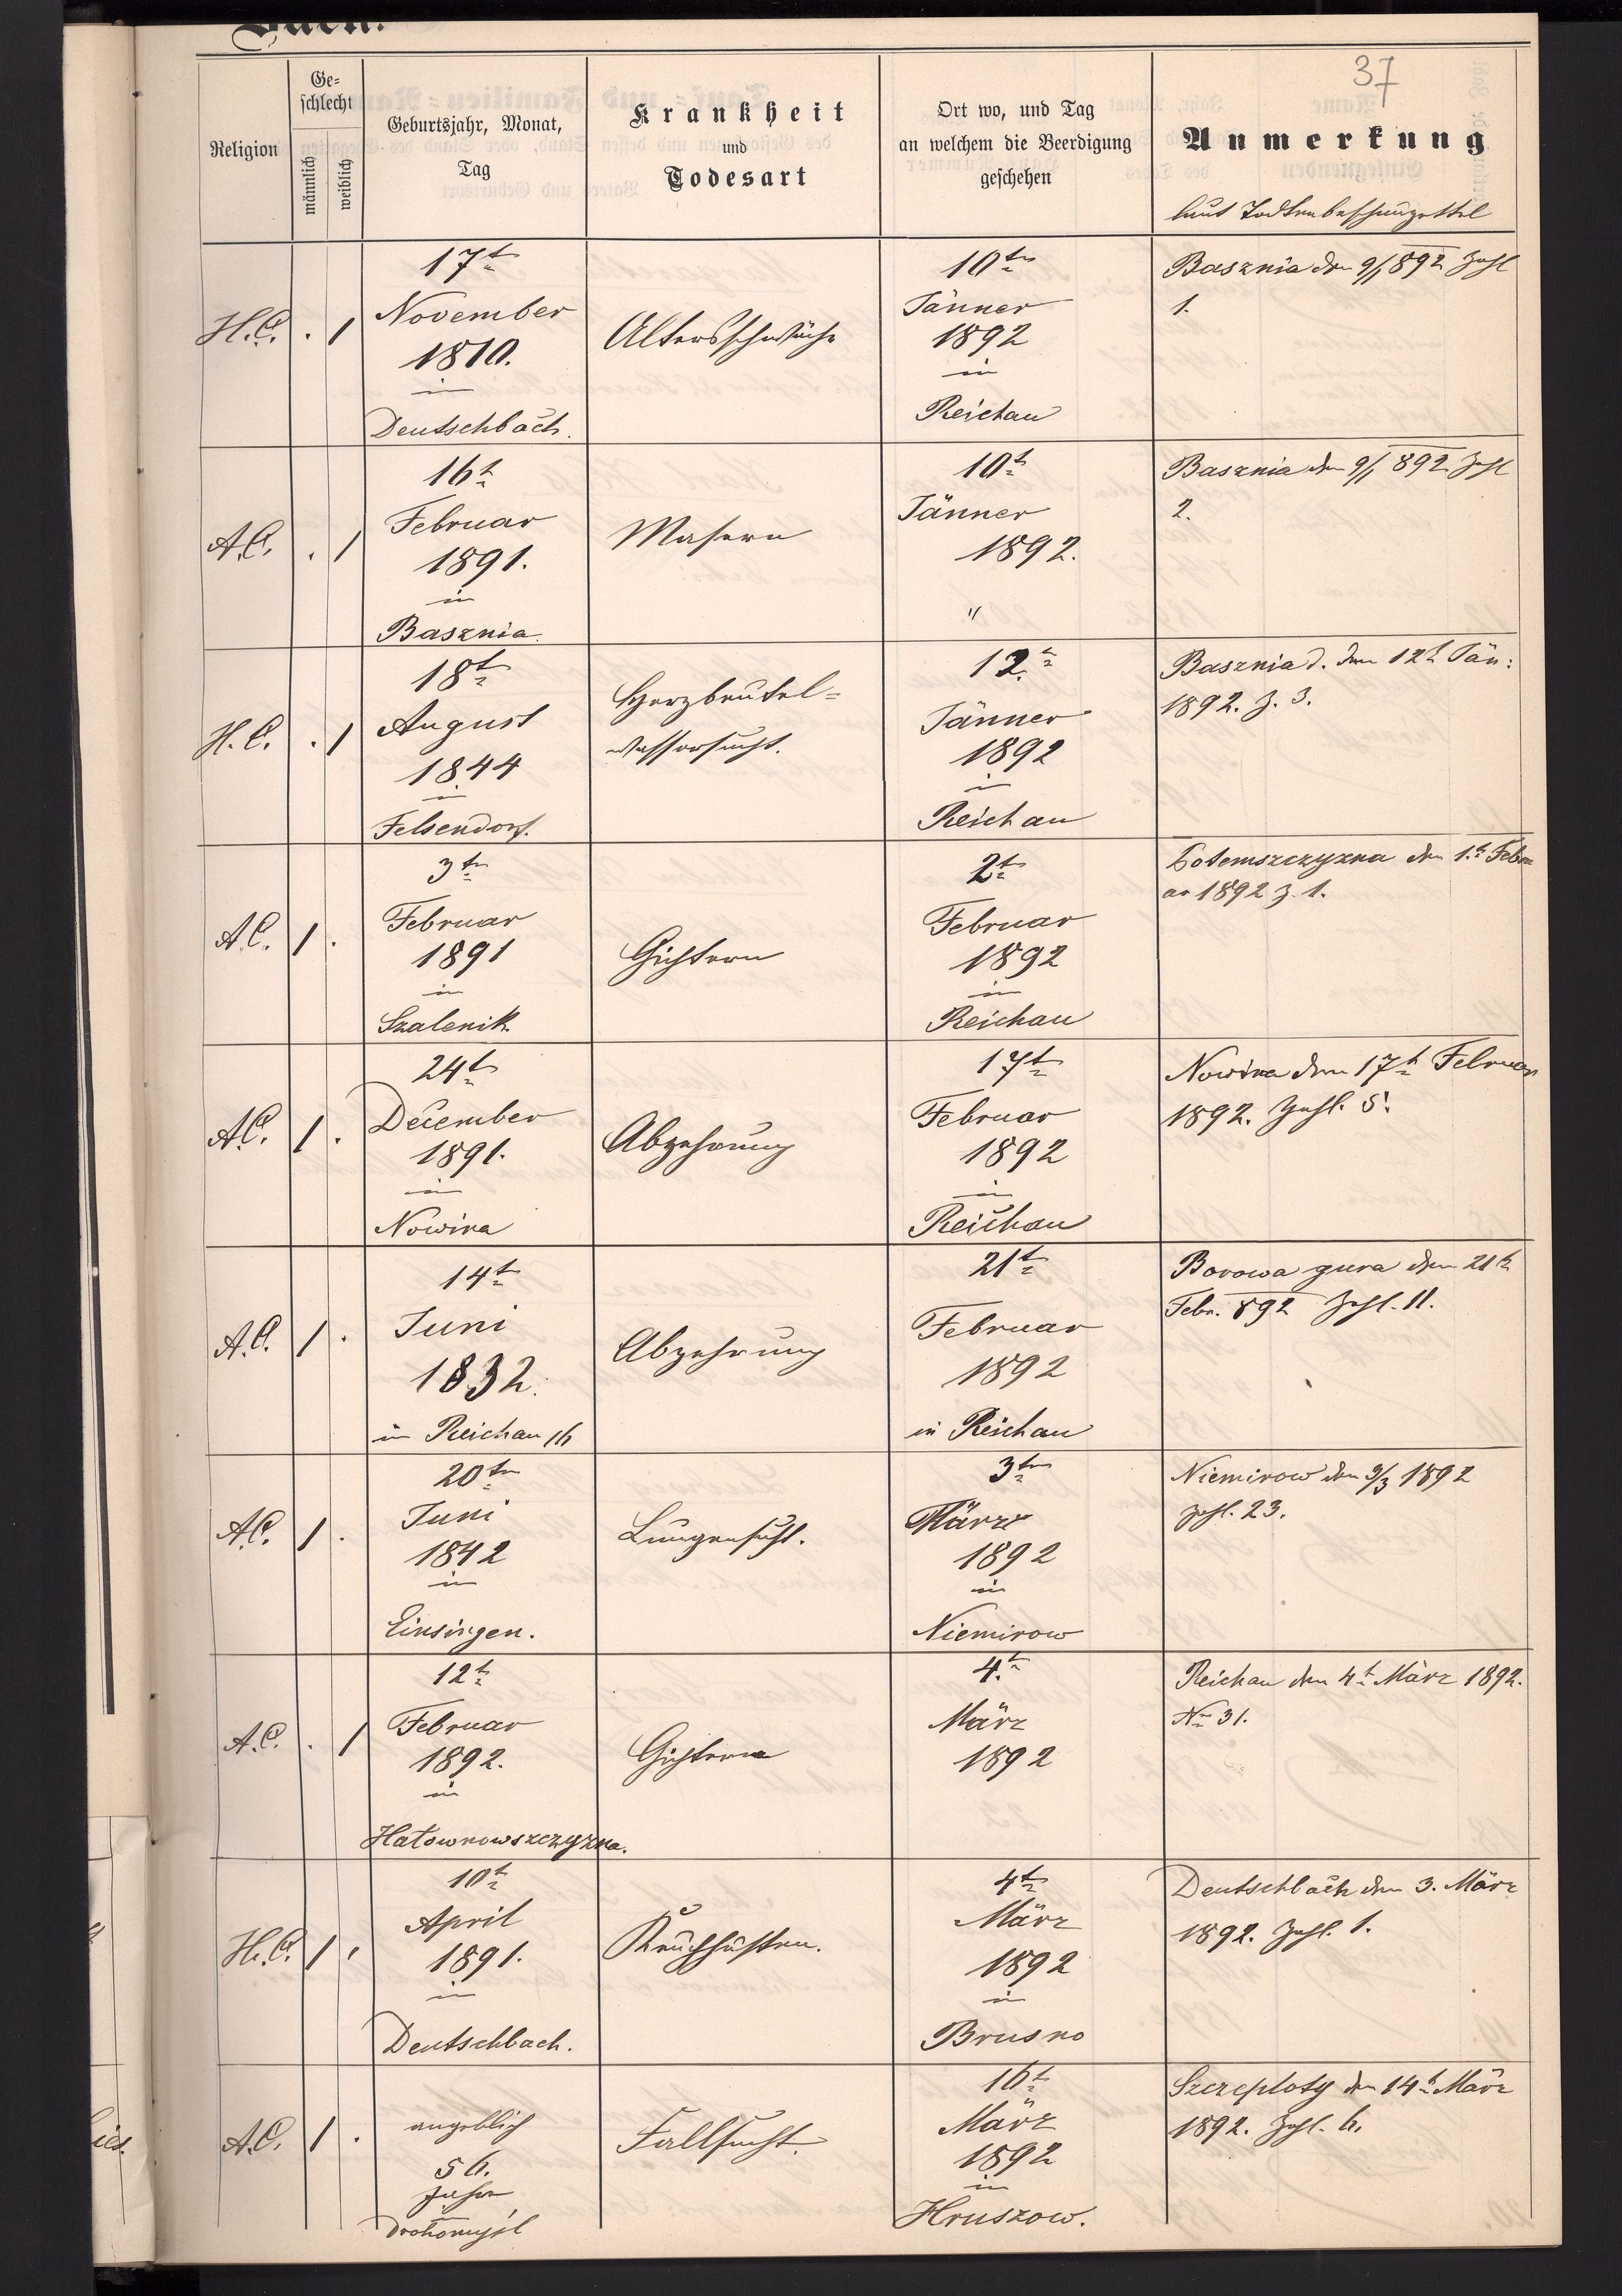 37
Religion
Ge=
schlecht
männlich
weiblich
Geburtsjahr, Monat,
Tag
Krankheit
und
Todesart
Ort wo, und Tag
an welchem die Beerdigung
geschehen
Anmerkung
laut Todtenbeschauzettel
H.C. . 1
17t
November
1810.
in
Deutschbach.
Altersschwäche
10tn
Jänner
1892
in
Reichau
Basznia den 9/1 892 Zahl
1.
A.C. . 1
16t
Februar
1891.
in
Basznia.
Masern
10t
Jänner
1892.
"
Basznia den 9/1 892 Zahl
2.
H.C. . 1
18t
August
1844
in
Felsendorf.
Herzbeutel=
wassersucht.
12.t
Jänner
1892
in
Reichau
Basznia d. den 12t Jän:
1892. Z. 3.
A.C. 1 .
3tn
Februar
1891
in
Szalenik
Gichtern
2t
Februar
1892
in
Reichau
den 1.t Febru
ar 1892 Z. 1.
A.C. 1 .
24t
December
1891.
in
Nowina
Abzehrung
17t
Februar
1892
in
Reichau
Nowina den 17t Februar
1892. Zahl. 5.
A.C. 1 .
14t
Juni
1832.
in Reichau 16
Abzehrung
21t
Februar
1892
in Reichau
Borowa gura den 21t
Febr. 892 Zahl. 11.
A.C. 1 .
20tn
Juni
1842
in
Einsingen.
Lungensucht.
3tn
März
1892
in
Niemirow
Niemirow den 3/3 1892
Zahl. 23.
A.C. . 1
12t
Februar
1892.
in
Hatownowszczyzna.
Gichtern
4.t
März
1892
Reichau den 4t März 1892.
No 31.
H.C. 1 .
10t
April
1891.
in
Deutschbach.
Keuchhusten.
4t
März
1892
in
Brusno
Deutschbach den 3. März
1892. Zahl. 1.
A.C. 1 .
angeblich
56.
Jahre
Drohomysl
Fallsucht.
16t
März
1892
in
Hruszow.
Szczeploty den 14t März
1892. Zahl. 6.